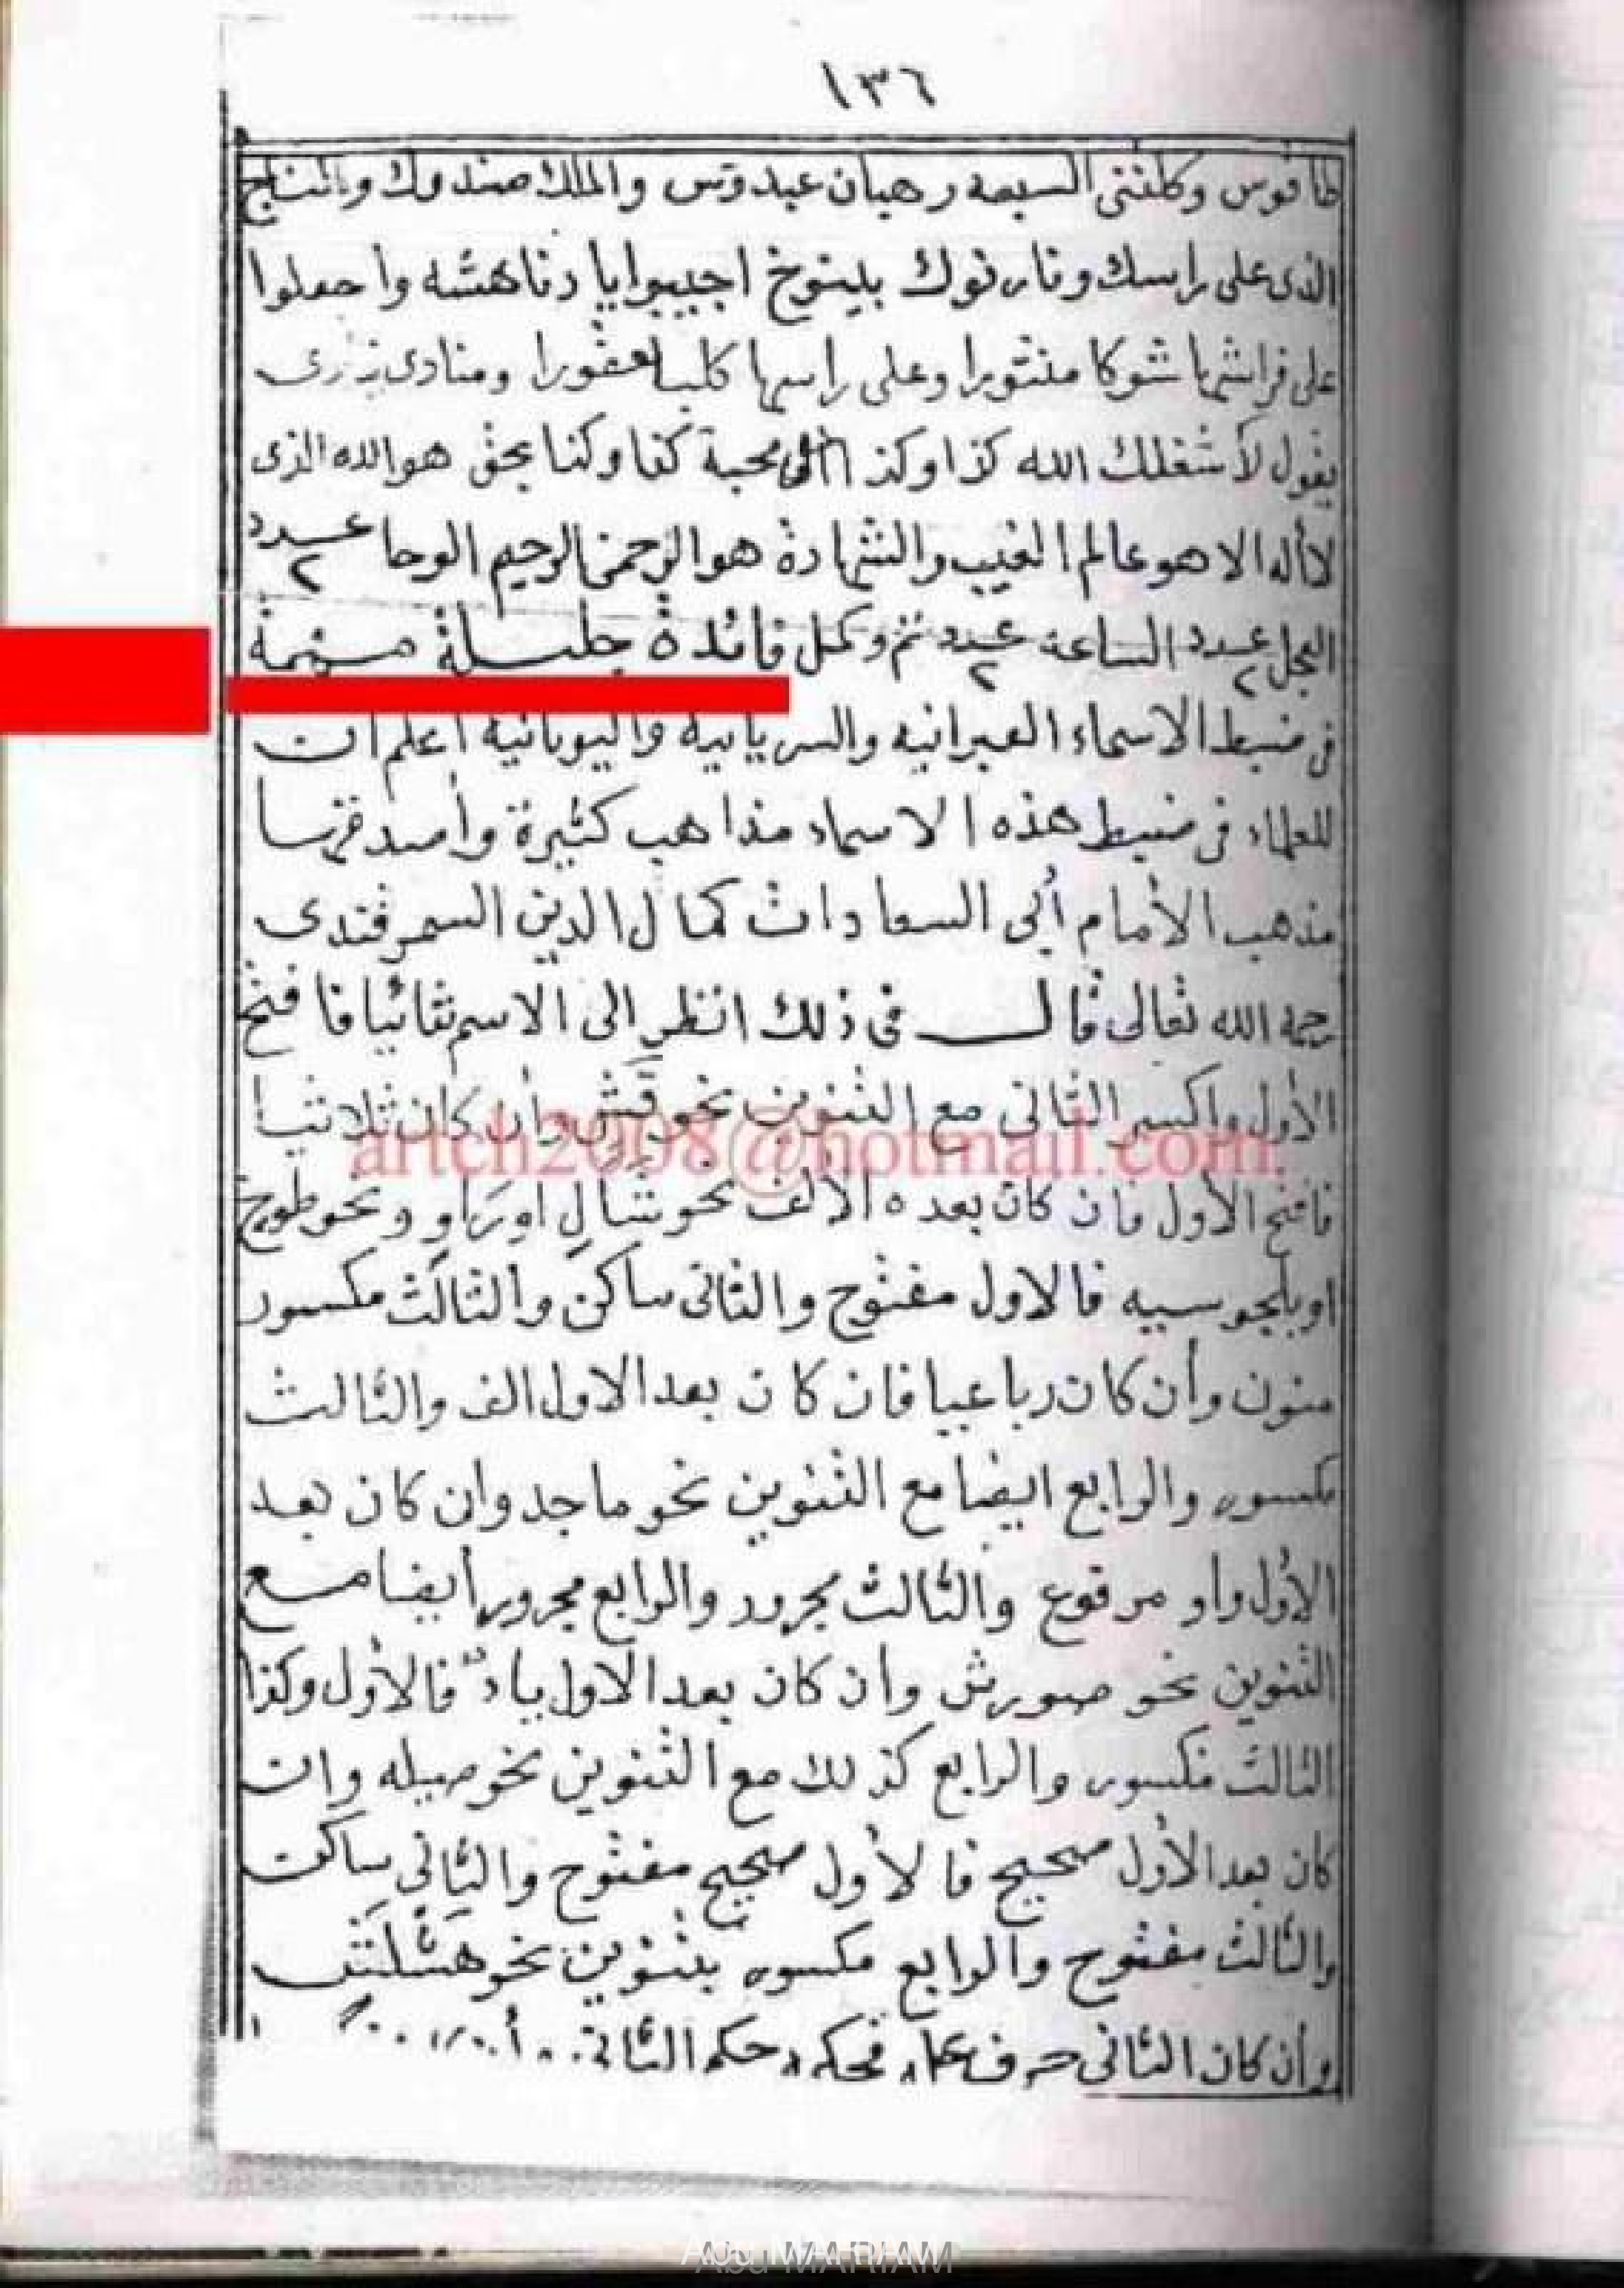 ١٣٦
طافوس وكلتنى السبعه رهبان عبدوس والملك صندوك والتناج
الذى على راسك ونار نوك بلينوخ اجيبوا يا دناهشه واجعلوا
على فراشها شوكا منثورا وعلى راسها كلبا عقورا ومنادى
يقول لأشغلك الله كذا وكذا الى محبة كذا وكذا بحق هو الله الذى
لاأله الا هو عالم الغيب والشهادة هو الرحمن الرحيم الوحا عدد ٢
العجل عدد ٢ الساعه عدد ٢ تم وكمل فائدة جليلة مهمة
فى ضبط الاسماء العبرانيه والسريانيه واليونانيه أعلم ان
للعلماء فى ضبط هذه الاسماء مذاهب كثيرة وأصدقها
مذهب الأمام أبى السعادات كمال الدين السمرقندى
رحمه الله تعالى قال فى ذلك انظر الى الاسم ثنائيا فافتح
الأول واكسر الثانى مع التنوين نحو قَشٍ وأن كان ثلاثيا
artch2008@hotmail.com
فافتح الأول فان كان بعده الألف نحو شَالٍ اورَاوٍ ونحو طوج
او بلجوسيه فالاول مفتوح والثانى ساكن والثالث مكسور
منون وأن كان رباعيا فان كان بعد الاول الف والثالث
مكسور والرابع ايضا مع التنوين نحو ماجد وان كان بعد
الأول واو مرفوع والثالث مجرور والرابع مجرور أيضا مع
التنوين نحو صورش وان كان بعد الأول ياء فالأول وكذا
الثالث مكسور والرابع كذلك مع التنوين نحو صيله وان
كان بعد الأول صحيح فالأول صحيح مفتوح والثانى ساكن
والثالث مفتوح والرابع مكسور بتنوين نحو هشلنف
وأن كان الثانى حرف عله فحكمه حكم الثانى
Abu MARIAM